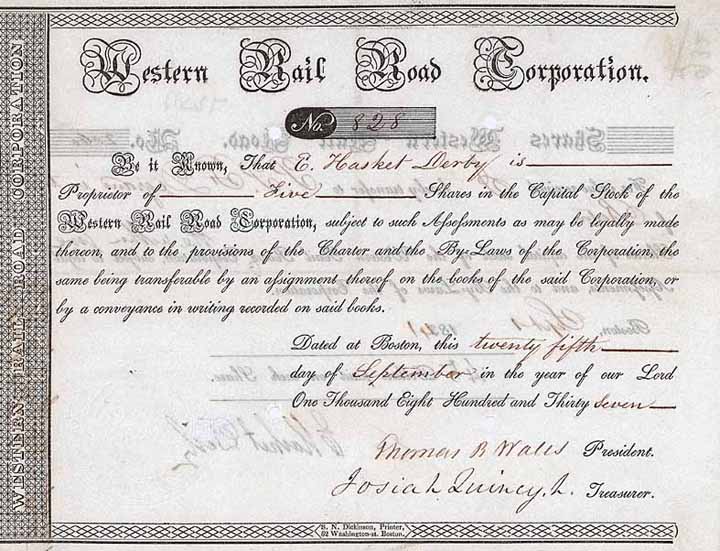 Western Rail Road Corporation.
No. 828
Be it Known, That E. Hasket Derby is
Proprietor of Five Shares in the Capital Stock of the
Western Rail Road Corporation, subject to such Assessments as may be legally made
thereon, and to the provisions of the Charter and the By-Laws of the Corporation, the
same being transferable by an assignment thereof, on the books of the said Corporation, or
by a conveyance in writing recorded on said books.
Dated at Boston, this twenty fifth
day of September in the year of our Lord
One Thousand Eight Hundred and Thirty seven
Thomas B Wales President.
Josiah Quincy, Jr. Treasurer.
S. N. Dickinson, Printer,
52 Washington-st. Boston.
WESTERN RAIL ROAD CORPORATION